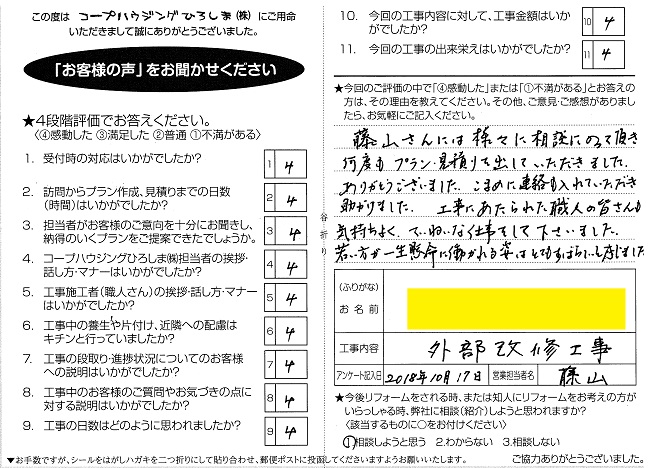 この度は コープハウジングひろしま(株) にご用命
いただきまして誠にありがとうございました。
「お客様の声」をお聞かせください
★4段階評価でお答えください。
〈④感動した ③満足した ②普通 ①不満がある〉
1. 受付時の対応はいかがでしたか?
1 4
2. 訪問からプラン作成、見積りまでの日数
(時間)はいかがでしたか?
2 4
3. 担当者がお客様のご意向を十分にお聞きし、
納得のいくプランをご提案できたでしょうか。
3 4
4. コープハウジングひろしま㈱担当者の挨拶・
話し方・マナーはいかがでしたか?
4 4
5. 工事施工者(職人さん)の挨拶・話し方・マナー
はいかがでしたか?
5 4
6. 工事中の養生や片付け、近隣への配慮は
キチンと行っていましたか?
6 4
7. 工事の段取り・進捗状況についてのお客様
への説明はいかがでしたか?
7 4
8. 工事中のお客様のご質問やお気づきの点に
対する説明はいかがでしたか?
8 4
9. 工事の日数はどのように思われましたか?
9 4
▼お手数ですが、シールをはがしハガキを二つ折りにして貼り合わせ、郵便ポストに投函してくださいますようお願いいたします。
谷折り
10. 今回の工事内容に対して、工事金額はいか
がでしたか?
10 4
11. 今回の工事の出来栄えはいかがでしたか?
11 4
★今回のご評価の中で「④感動した」または「①不満がある」とお答えの
方は、その理由を教えてください。その他、ご意見・ご感想がありまし
たら、お気軽にご記入ください。
藤山さんには様々に相談にのって頂き
何度もプラン・見積りを出していただきました。
ありがとうございました。こまめに連絡も入れていただき
助かりました。 工事にあたられた職人の皆さんも
気持ちよく、ていねいな仕事をして下さいました。
若い方が一生懸命に働かれる姿はとてもすばらしいと感じました
(ふりがな)
お名前
工事内容 外部改修工事
アンケート記入日 2018年10月17日 営業担当者名 藤山
★今後リフォームをされる時、または知人にリフォームをお考えの方が
いらっしゃる時、弊社に相談(紹介)しようと思われますか?
〈該当するものに○をお付けください〉
①相談しようと思う 2.わからない 3.相談しない
ご協力ありがとうございました。